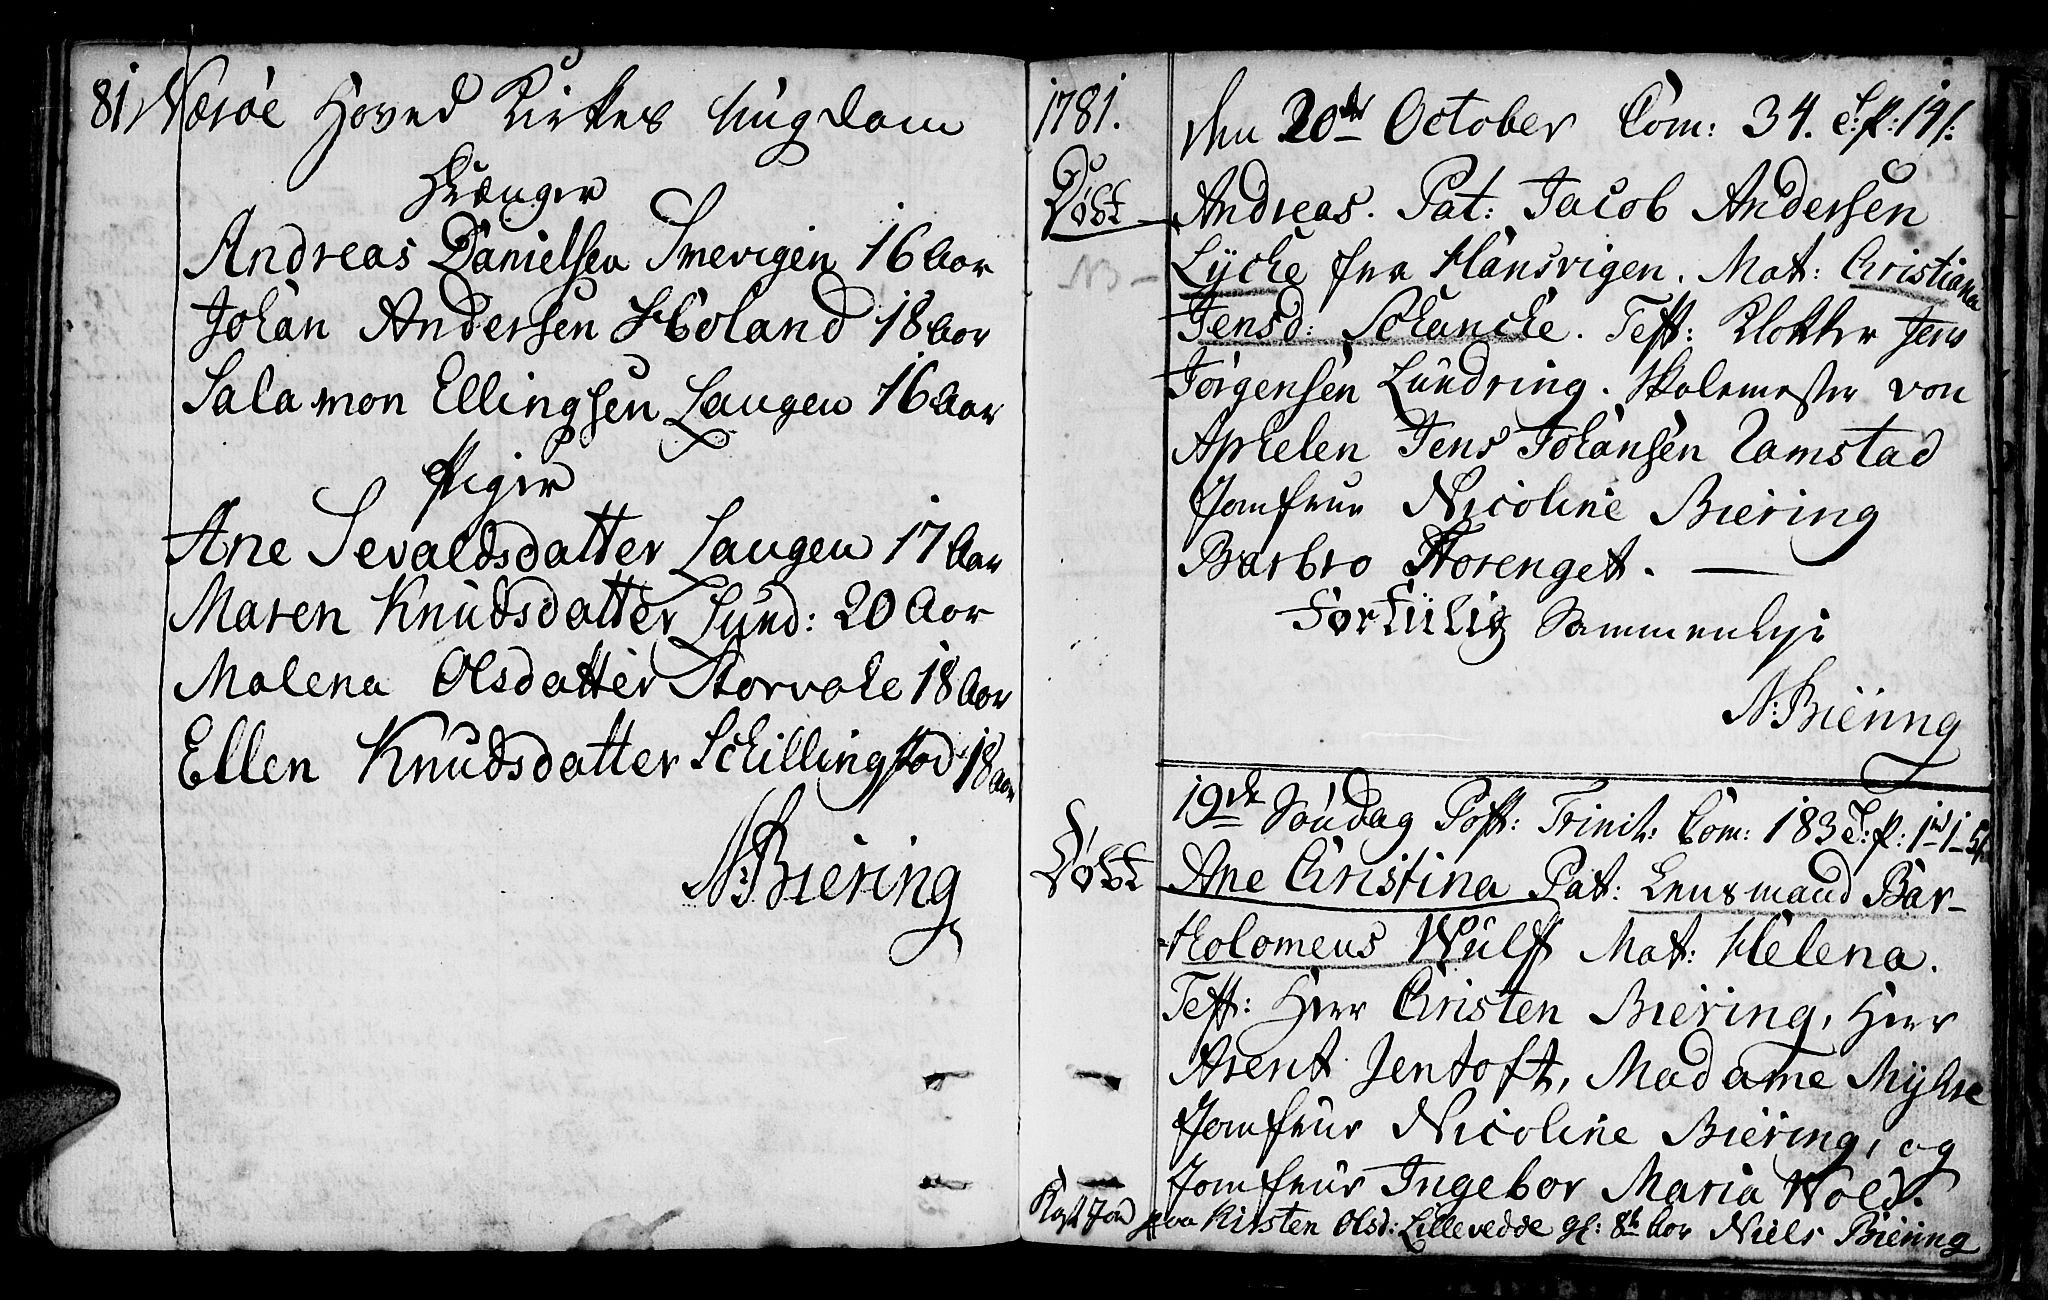 81 Nærøe Hoved Kirkes Ungdom
Drænger
Andreas Danielsen Smevigen 16 Aar
Johan Andersen Høland 18 Aar
Salamon Ellingsen Laugen 16 Aar
Piger
Ane Sevaldsdatter Laugen 17 Aar
Maren Knudsdatter Lund: 20 Aar
Malena Olsdatter Storvahe 18 Aar
Ellen Knudsdatter Schillingstad 18 Aar
N: Biering
1781.
den 20de October Com: 34. C: p: 141:
Døbt
Andreas. Pat: Jacob Andersen
NB - Lycke fra Hansvigen. Mat: Cristiana
Jensd: Schancke. Test: Klokker Jens
Jørgensen Lundring. Skolemester von
Aphelen Jens Johansen Ramstad
Jomfrue Nicoline Biering
Barbro Storenget.
Fortiilig Sammenleje
N: Biering
19de Søndag Post: Trinit: Com: 183
Døbt Ane Cristina Pat: Lensmand Bar-
-tholomeus Wulff Mat: Helena.
Test: Herr Cristen Biering, Herr
Arent Jentoft, Madame Myhre
Jomfrue Nicoline Biering, og
Jomfrue Ingebor Maria Wold.
Kast Jord paa Kirsten Olsd: Lillevedde gl: Aar Niels Biering